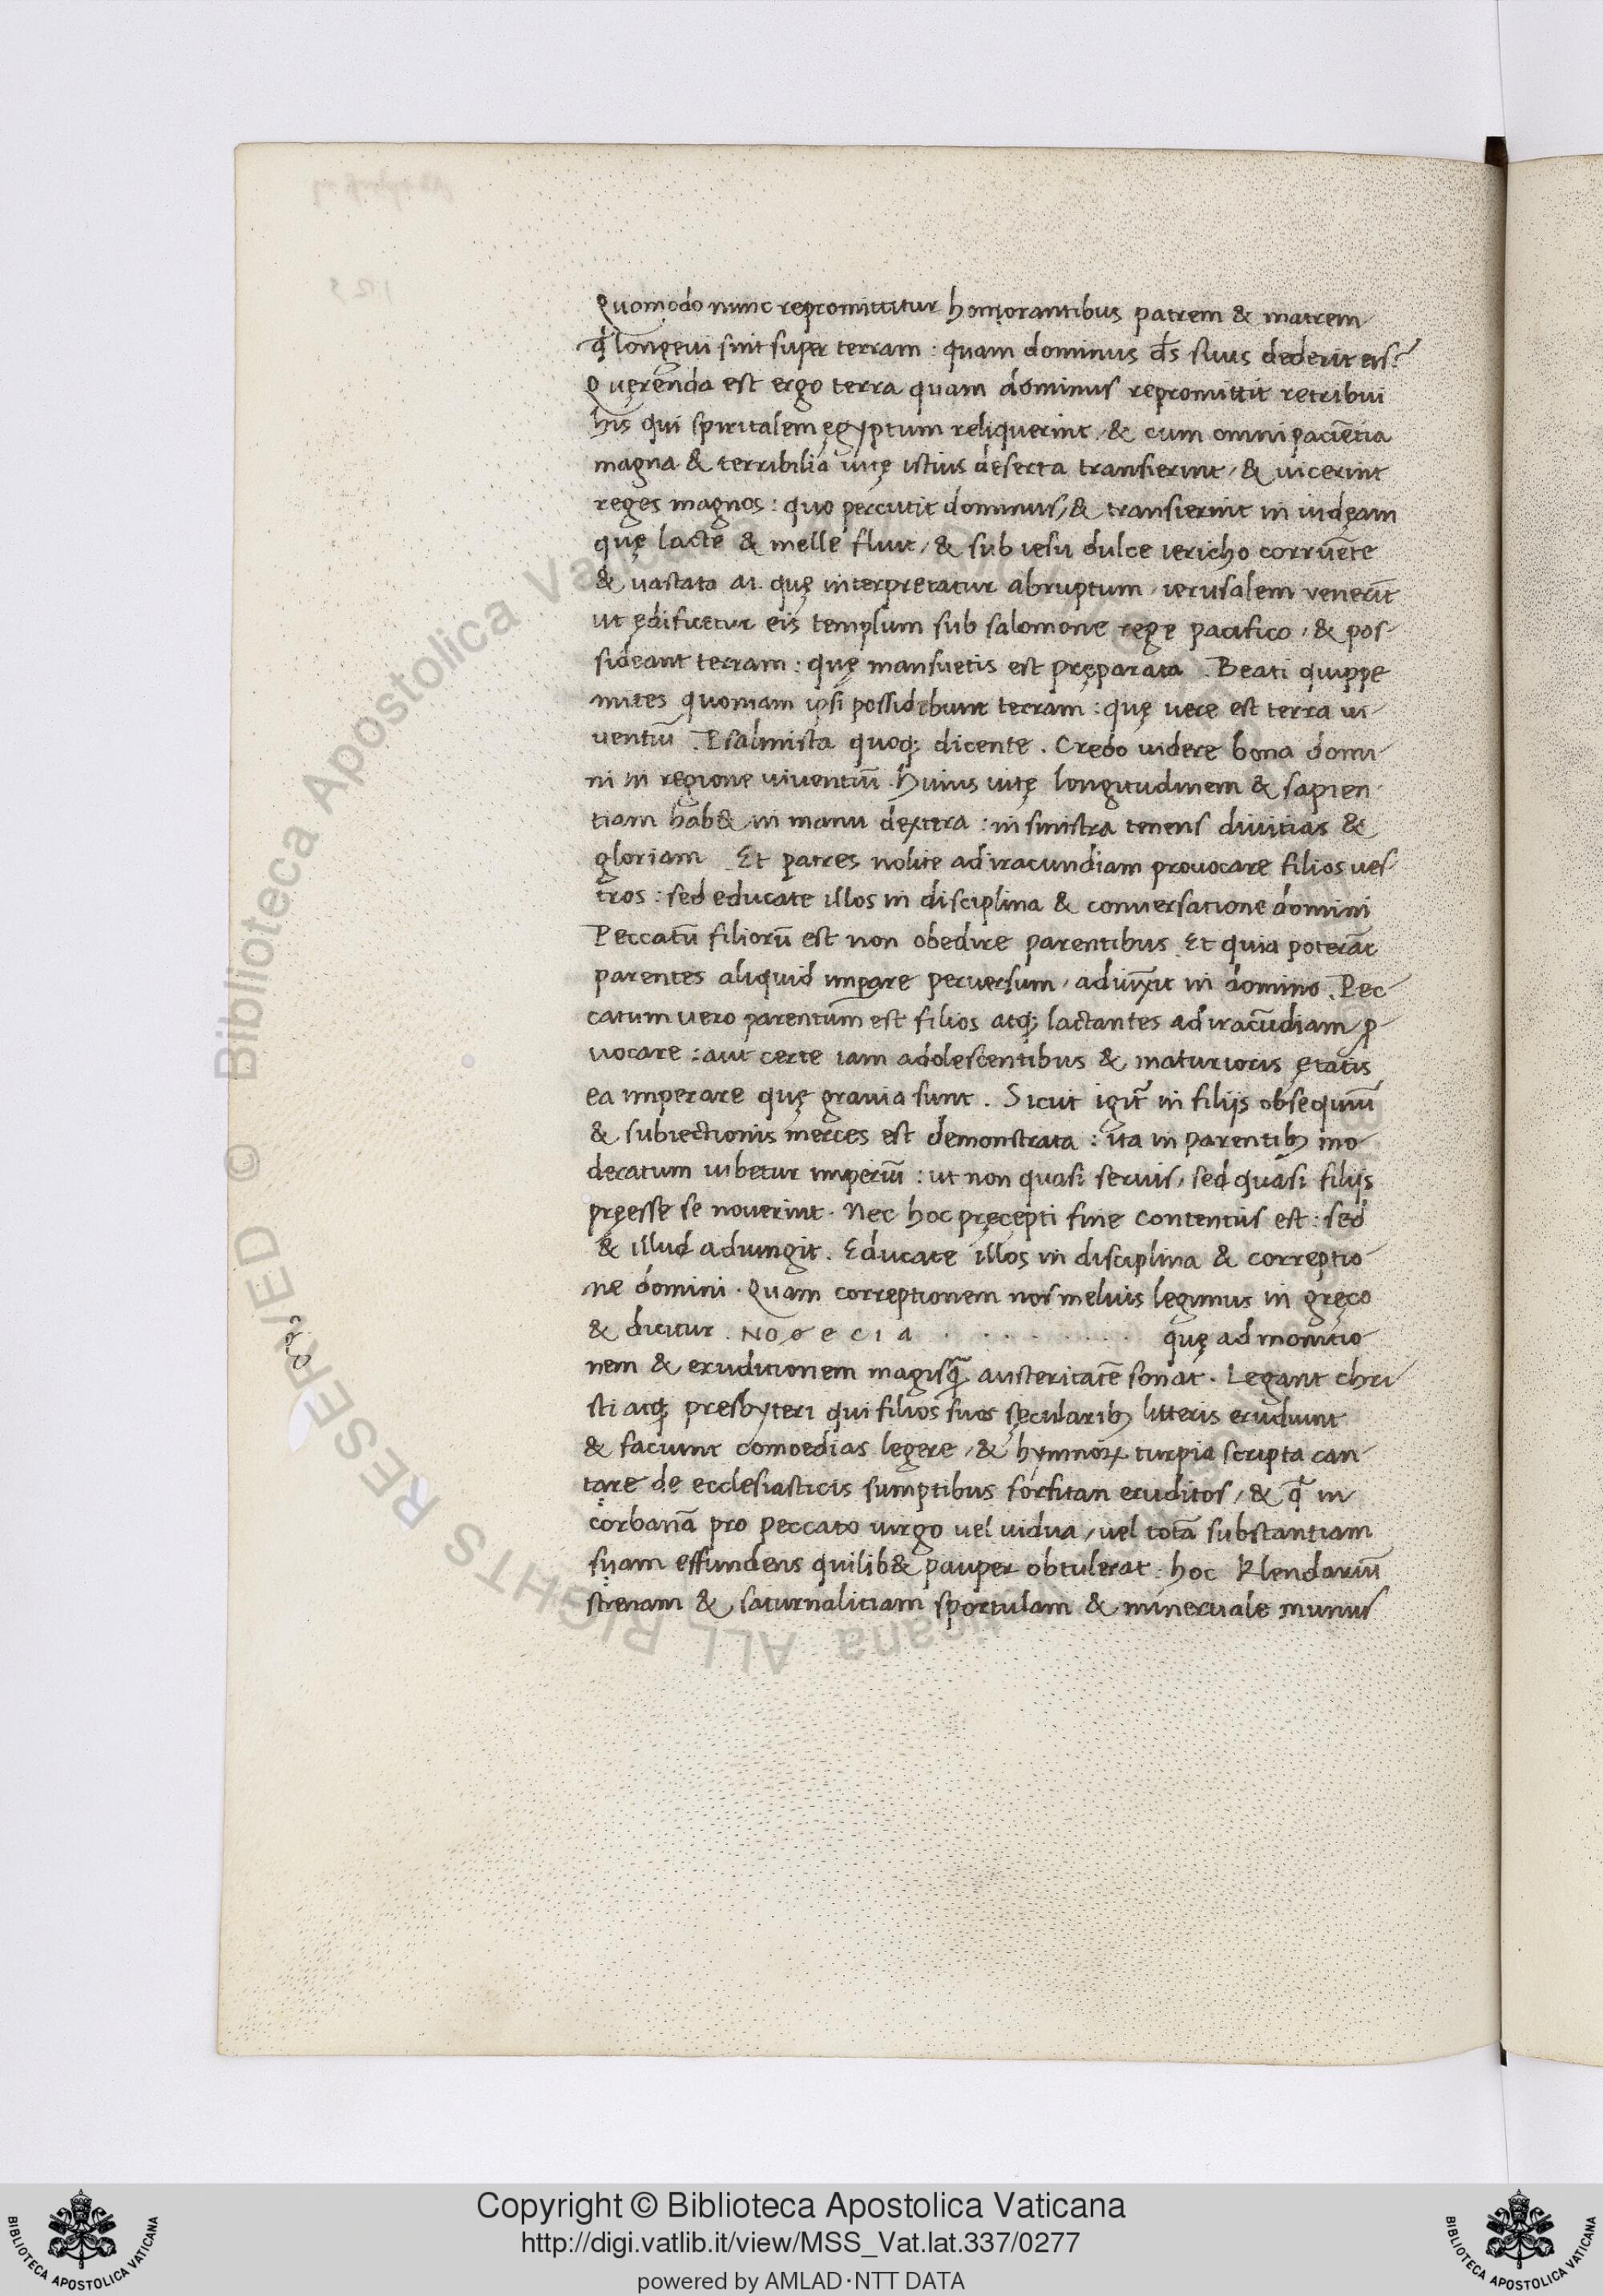 Quomodo nunc repromittitur honorantibus patrem & matrem
ꝙ longeui sint super terram : quam dominus ds̄ suus dederit eis?
Quęrenda est ergo terra quam dominus repromittit retribui
his qui spiritalem ęgyptum reliquerint / & cum omni paciētia
magna & terribilia uitę istius deserta transierint / & uicerint
reges magnos : quo percutit dominus / & transierint in iudęam
quę lacte & melle fluit / & sub iesu dulce iericho corruēte
& uastata ai. quę interpretatur abruptum / ierusalem venerīt
ut ędificetur eis templum sub salomone rege pacifico / & pos
sideant terram : quę mansuetis est pręparata . Beati quippe
mites quoniam ipsi possidebunt terram : quę vere est terra ui
uentiū . Psalmista quoq; dicente . Credo uidere bona domi
ni in regione viventiū . Huius uitę longitudinem & sapien
tiam hab& in manu dextera : in sinistra tenens diuitias &
gloriam Et patres nolite ad iracundiam provocare filios ues
tros : sed educate illos in disciplina & conuersatione domini
Peccatū filiorū est non obedire parentibus Et quia poterāt
parentes aliquid imꝑare peruersum / adiūxit in domino . Pec
catum vero parentum est filios atq; lactantes ad iracūdiam ꝓ
uocare : aut certe iam adolescentibus & maturioris ętatis
ea imperare quę grauia sunt . Sicut igit̄ in filijs obsequiū
& subiectionis merces est demonstrata : ita in parentibꝫ mo
deratum iubetur imperiū : ut non quasi seruis / sed quasi filijs
pręesse se nouerint . Nec hoc pręcepti fine contentus est : sed
& illud adiungit . Educate illos in disciplina & correptio
ne domini . Quam correptionem nos melius legimus in gręco
& dicitur . NOΘECIA . . . . . . . . . quę admonitio
nem & eruditionem magisq̄ austeritatē sonat . Legant chri
sti atq; presbyteri qui filios suos sęcularibꝫ litteris erudiunt
& faciunt comoedias legere / & hymnoꝝ turpia scripta can
tare de ecclesiasticis sumptibus forsitan eruditos / & q̄ in
corbanā pro peccato uirgo uel uidua / uel totā substantiam
suam effundens quilib& pauper obtulerat : hoc Klendariū
strenam & saturnalitiam sportulam & mineruale munus
Copyright © Biblioteca Apostolica Vaticana
http://digi.vatlib.it/view/MSS_Vat.lat.337/0277
powered by AMLAD·NTT DATA